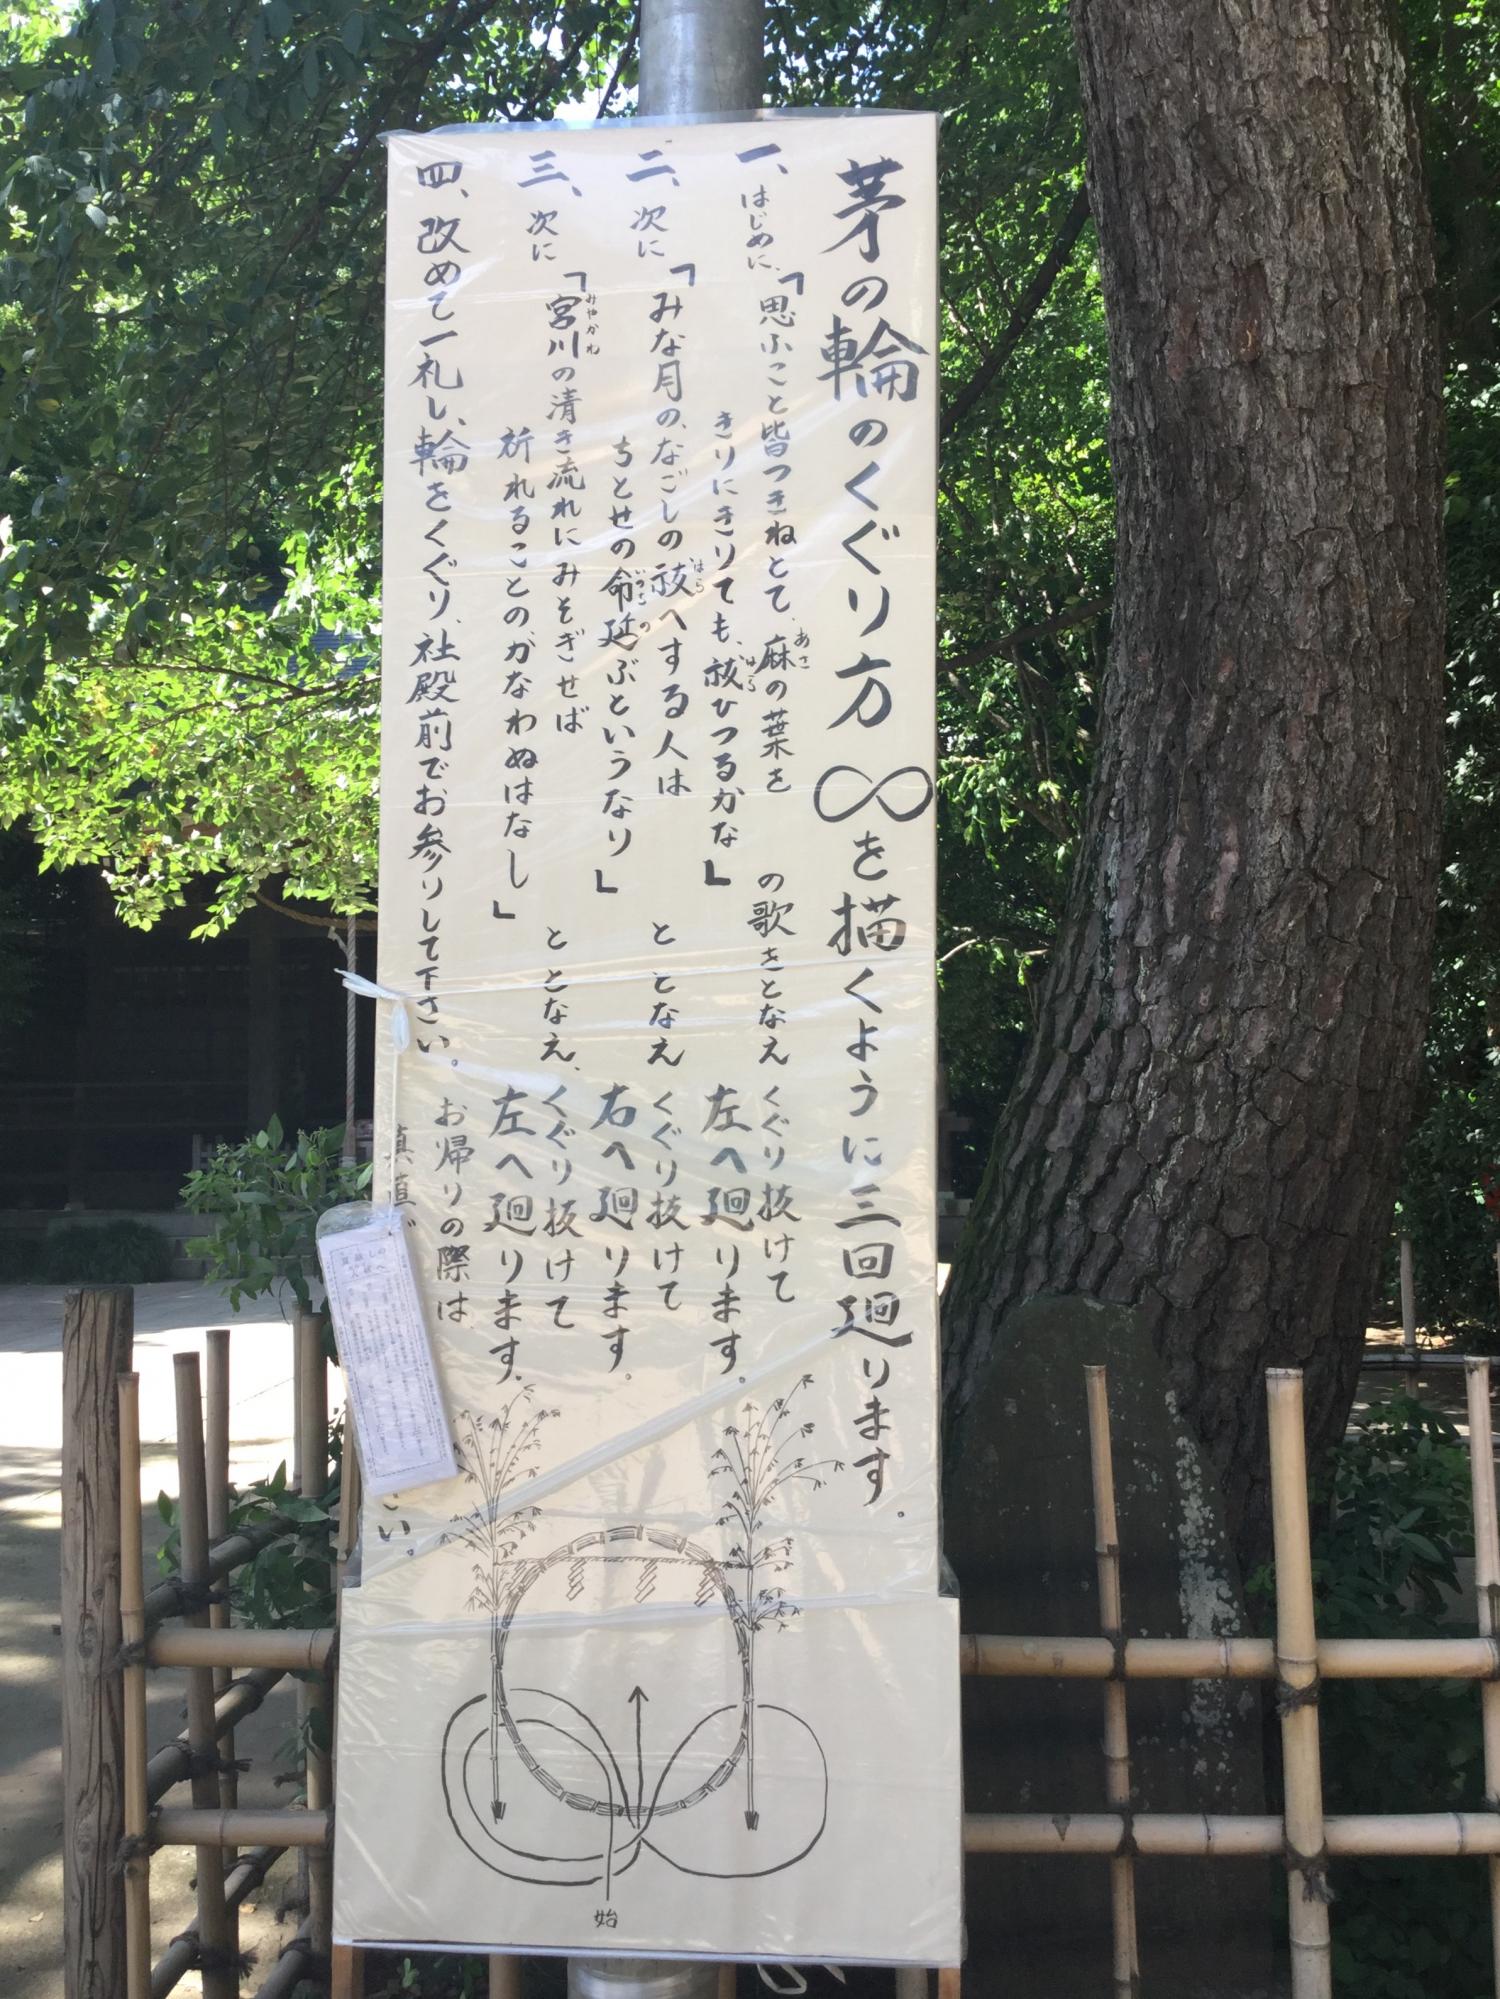 茅の輪のくぐり方 ∞を描くように三回廻ります。
一、はじめに、「思ふこと皆つきねとて、麻の葉を
きりにきりても、祓ひつるかな」
の歌をとなえ
くぐり抜けて
左へ廻ります。
二、次に「みな月の、なごしの祓へする人は
ちとせの命延ぶというなり」
ととなえ
くぐり抜けて
右へ廻ります。
三、次に「宮川の清き流れにみそぎせば
祈れることのかなわぬはなし」
ととなえ、
くぐり抜けて
左へ廻ります。
四、改めて一礼し、輪をくぐり、社殿前でお参りして下さい。
お帰りの際は
真直
い。
始